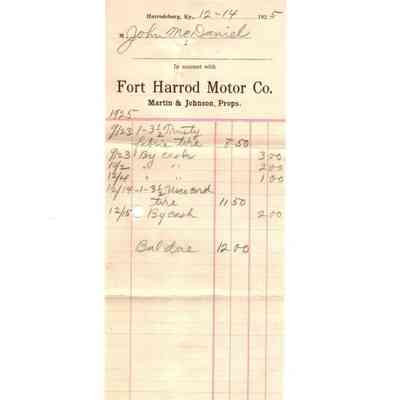 Harrodsburg, Ky., 12-14 1925
M John McDaniel
In account with
Fort Harrod Motor Co.
Martin & Johnson, Props.
1925
9/23 1-3½ Trusty
tire 8 50
9/23 1 By cash 3 00
" " 2 00
12/4 " " 1 00
12/14 -1-3½ cord
tire 11 50
12/15 By cash 2 00
Bal due 12 00